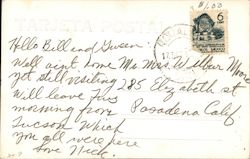 TARJETA POSTAL
$1.00
6
Hello Bill and Gwen.
Well aint home Mr Mrs Wilbur
yet still visiting 285 Elizabeth st
Will leave
morning from Pasadena Calif
Tucson Which
you all were here
love Nick.